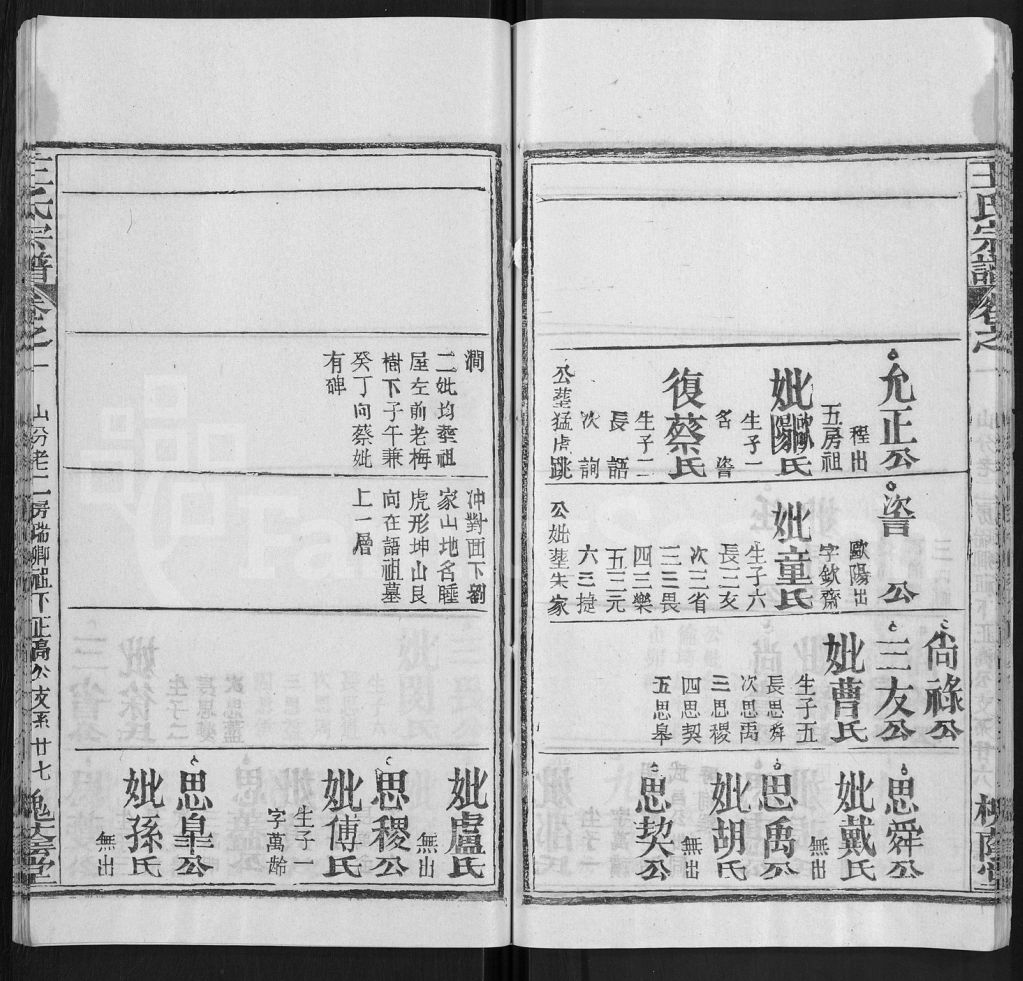 王氏宗譜
卷之一
允正公
程出
五房祖
妣歐陽氏
生子一
名咨
復蔡氏
生子一
長語
次詢
公塟猛虎跳
咨公
歐陽出
字欽齋
妣童氏
生子六
長三友
次三省
三三畏
四三樂
五三元
六三捷
公妣塟朱家
尙祿公
三友公
妣曹氏
生子五
長思舜
次思禹
三思稷
四思契
五思皋
思舜公
妣戴氏
無出
思禹公
妣胡氏
無出
思契公
澗
二妣均塟祖
屋左前老梅
樹下子午兼
癸丁向蔡妣
有碑
冲對面下劉
家山地名睡
虎形坤山艮
向在語祖墓
上一層
妣盧氏
無出
思稷公
妣傅氏
生子一
字萬齡
思皐公
妣孫氏
無出
王氏宗譜
卷之一
山分老二房瑞卿祖下正高公支系
廿七